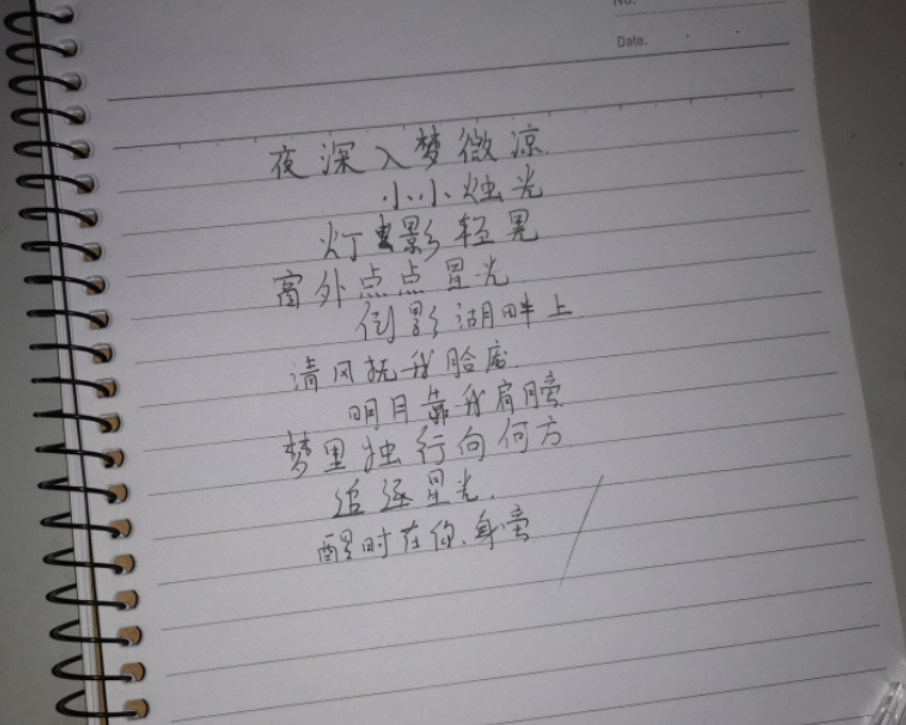 No.
Date.
夜深入梦微凉
小小烛光
灯影轻晃
窗外点点星光
倒影湖畔上
清风抚我脸庞
明月靠我肩膀
梦里独行向何方
追逐星光
醒时在你身旁